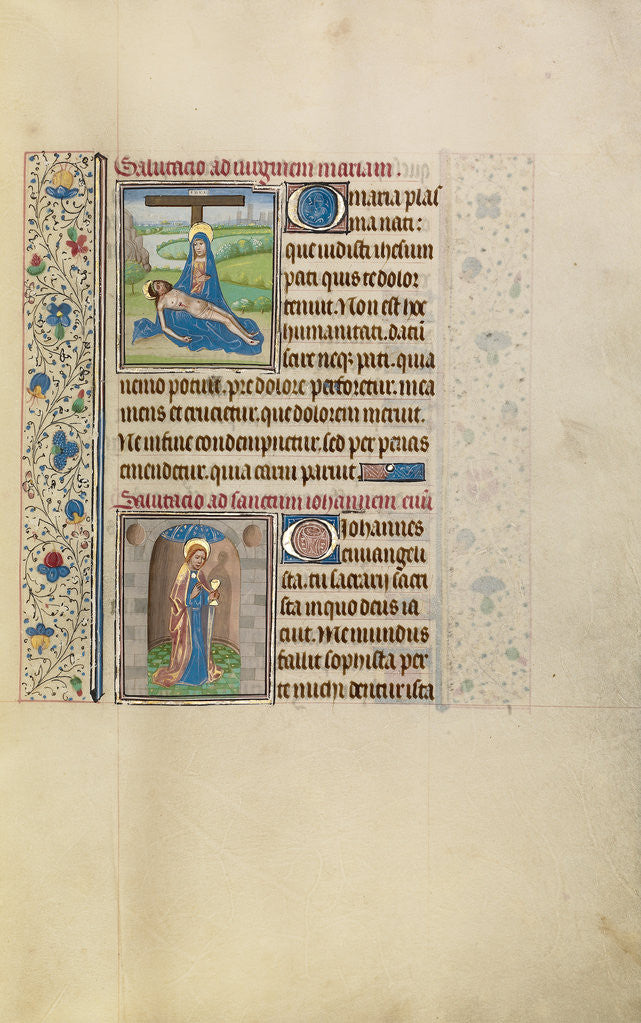 Salutacio ad virginem mariam.
O maria plas
ma nati:
que vidisti ihesum
pati quis te dolor
tenuit. Non est hoc
humanitati. datū
scire neqꝫ pati. quia
nemo potuit. pre dolore perforetur. mea
mens et crucietur. que dolorem meruit.
Ne in fine condempnetur. sed per penas
emendetur. quia carni paruit
Salutacio ad sanctum iohannem euū
O Iohannes
euuangeli
sta. tu sacrarij sacri
sta in quo deus ia
cuit. Me mundus
fallit sophista per
te michi dentur ista